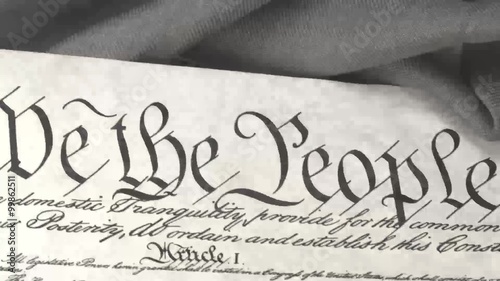 We the People
domestic Tranquility, provide for the common
Posterity, do ordain and establish this Const
Article I.
legislative Powers herein granted shall be vested in a Congress of the United States, which shall consist of a
Adobe Stock | 99862511